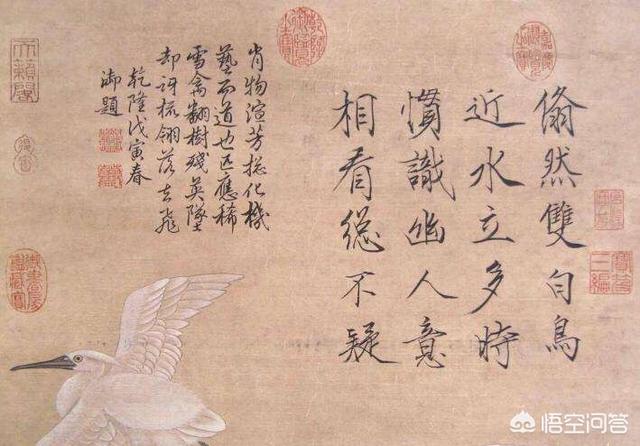 翛然雙白鳥
近水立多時
慣識幽人意
相看總不疑
肖物渲芳揔化機
藝而道也匹應稀
雪禽翻樹殘英墜
却訝梳翎落去飛
乾隆戊寅春
御題
天籟閣
寶笈三編
悟空问答